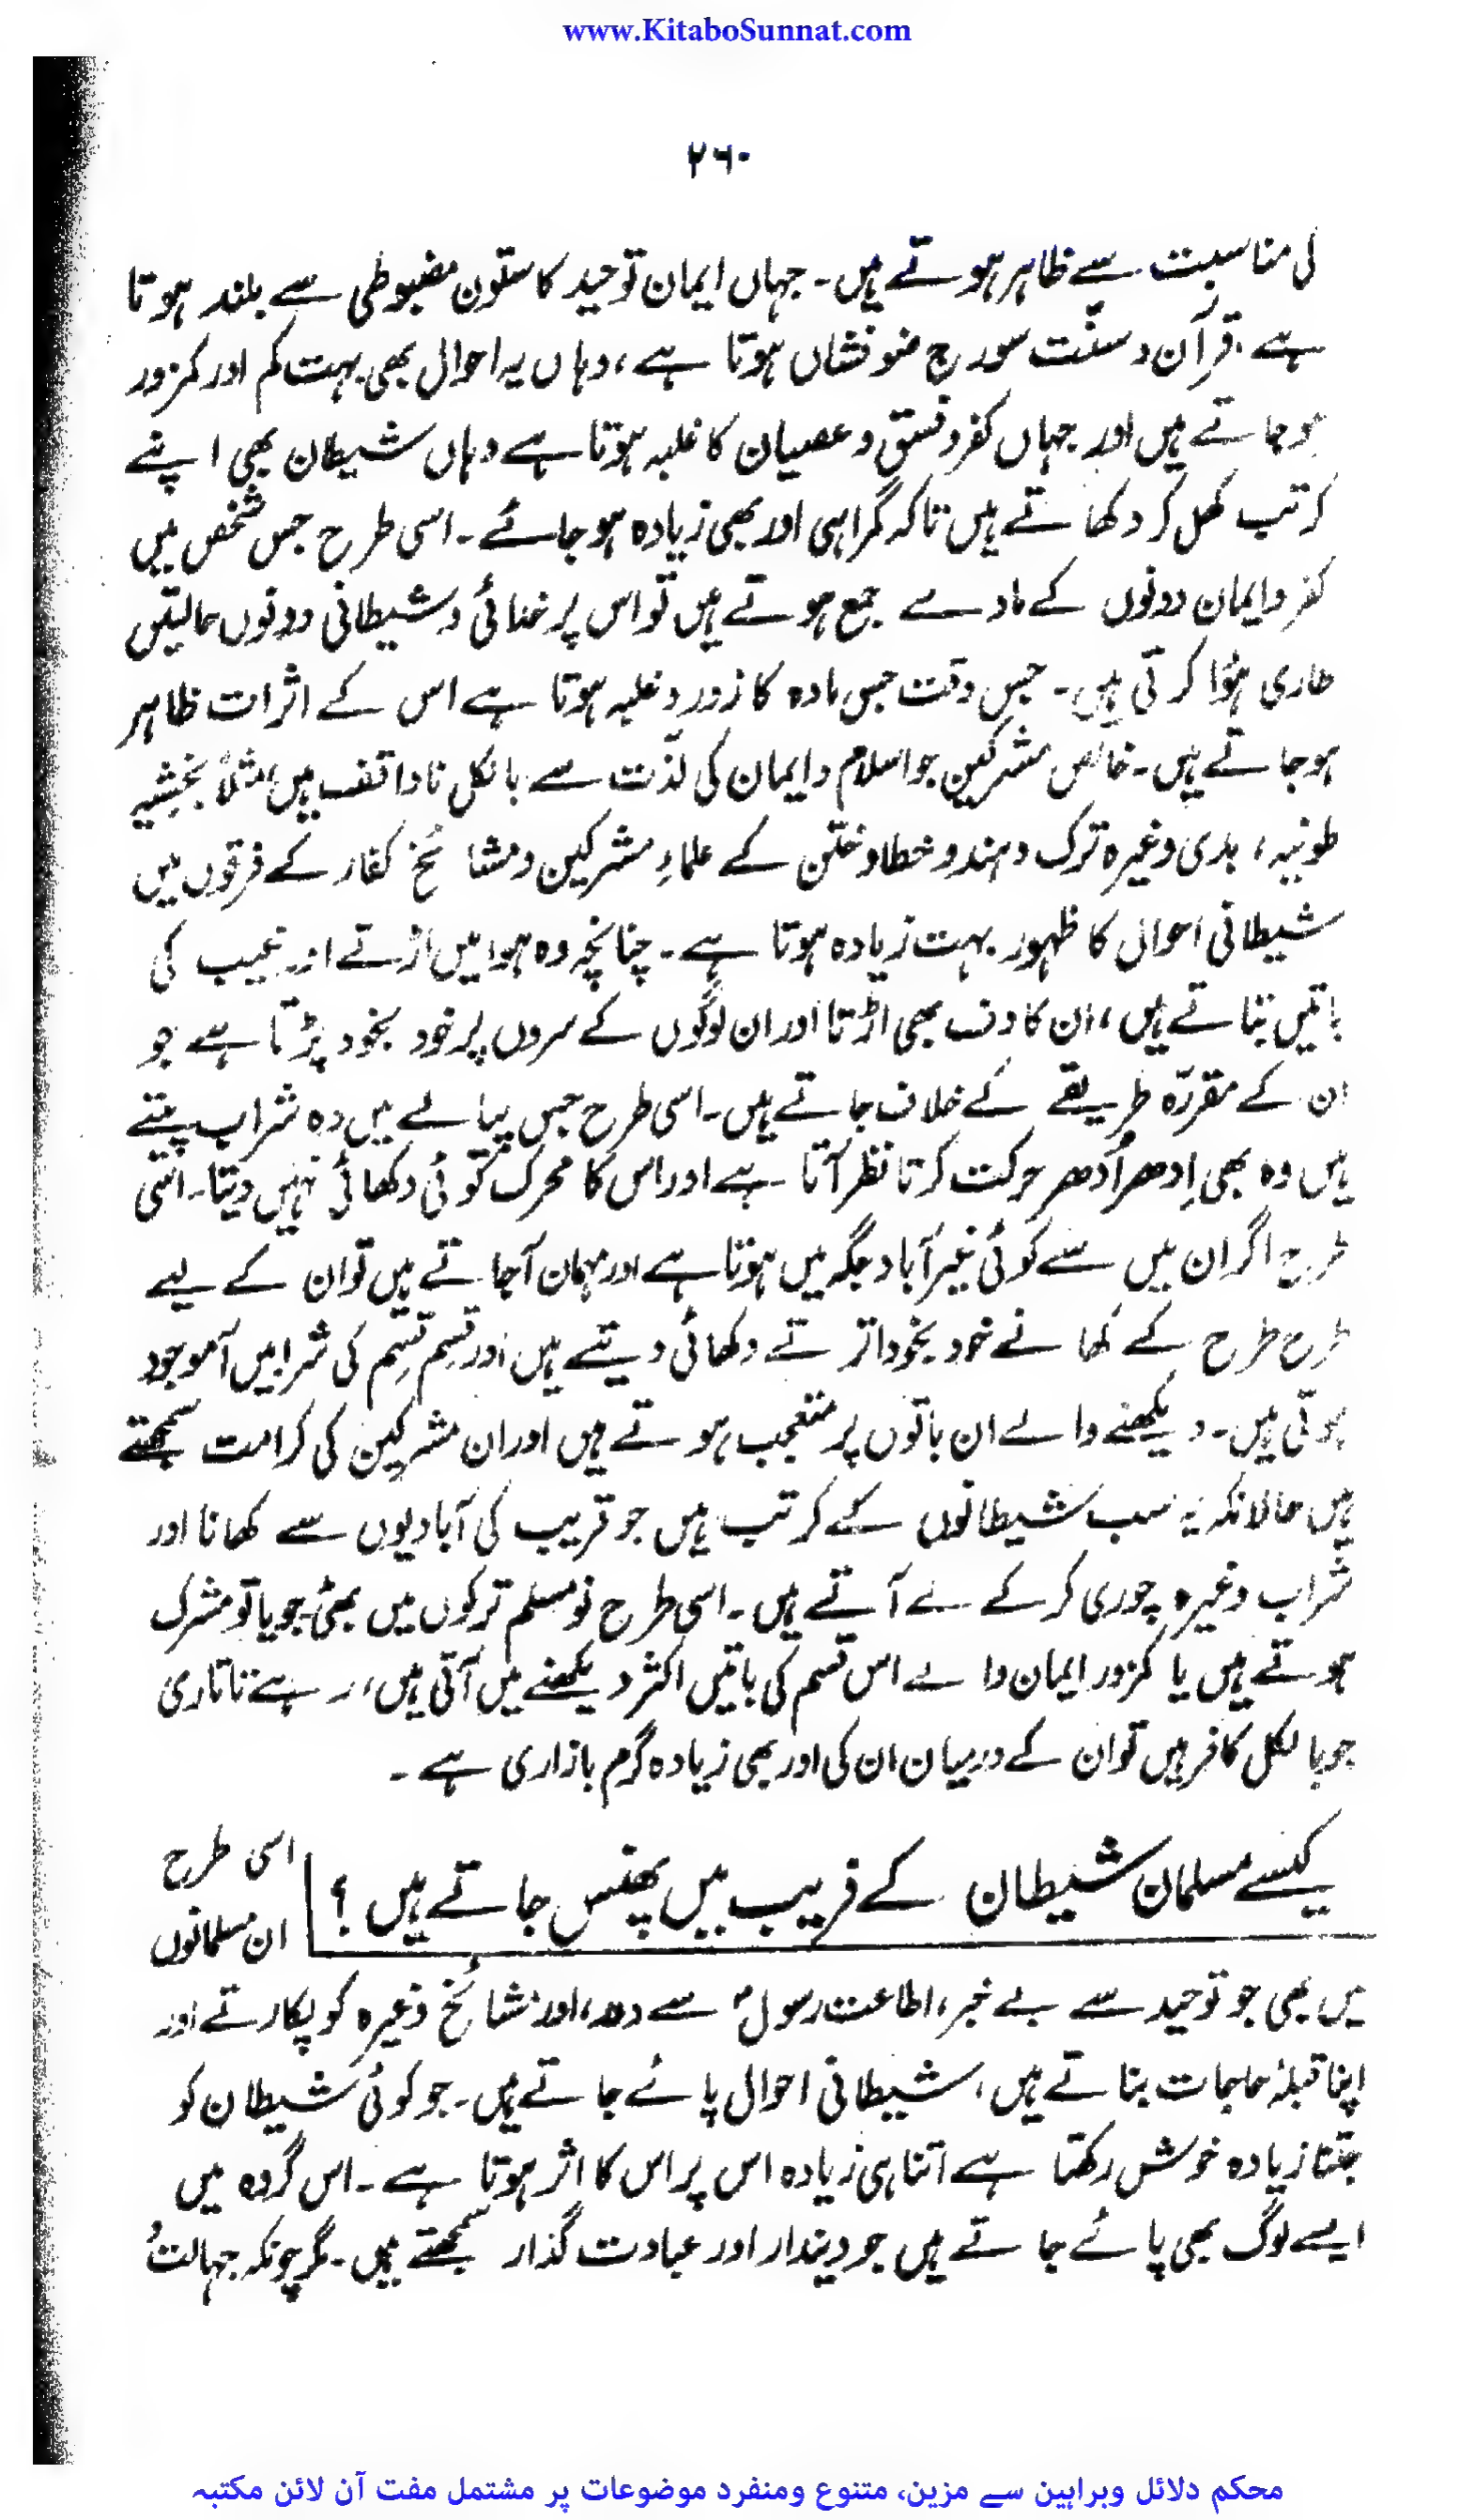 www.KitaboSunnat.com
۲۶۰
کی مناسبت سے ظاہر ہوتے ہیں۔ جہاں ایمان توحید کا ستون مضبوطی سے بلند ہوتا
ہے قرآن و سنّت سورج ضوفشاں ہوتا ہے، وہاں یہ احوال بھی بہت کم اور کمزور
ہو جاتے ہیں اور جہاں کفر و فسق و عصیان کا غلبہ ہوتا ہے وہاں شیطان بھی اپنے
کرتب کھل کر دکھاتے ہیں تاکہ گمراہی اور بھی زیادہ ہو جائے۔ اسی طرح جس شخص میں
کفر و ایمان دونوں کے مادے جمع ہوتے ہیں تو اس پر خدائی و شیطانی دونوں حالتیں
طاری ہؤا کرتی ہیں۔ جس وقت جس مادہ کا زور و غلبہ ہوتا ہے اس کے اثرات ظاہر
ہو جاتے ہیں۔ خالص مشرکین جو اسلام و ایمان کی لذّت سے بالکل ناواقف ہیں، مثلاً بخشیہ
طونیہ، بدی وغیرہ ترک و ہند و خطا و ختن کے علماءِ مشرکین و مشائخ کفار کے فرقوں میں
شیطانی احوال کا ظہور بہت زیادہ ہوتا ہے۔ چنانچہ وہ ہوا میں اڑتے اور غیب کی
باتیں بتاتے ہیں، ان کا دف بھی اڑتا اور ان لوگوں کے سروں پر خود بخود پڑتا ہے جو
ان کے مقررّہ طریقے کے خلاف جاتے ہیں۔ اسی طرح جس پیالے میں وہ شراب پیتے
ہیں وہ بھی اِدھر اُدھر حرکت کرتا نظر آتا ہے اور اس کا محرک کوئی دکھائی نہیں دیتا۔ اسی
طرح اگر ان میں سے کوئی غیر آباد جگہ میں ہوتا ہے اور مہمان آجاتے ہیں تو ان کے لیے
طرح طرح کے کھانے خود بخود اترتے دکھائی دیتے ہیں اور قسم قسم کی شرابیں آموجود
ہوتی ہیں۔ دیکھنے والے ان باتوں پر متعجب ہوتے ہیں اور ان مشرکین کی کرامت سمجھتے
ہیں حالانکہ یہ سب شیطانوں کے کرتب ہیں جو قریب کی آبادیوں سے کھانا اور
شراب وغیرہ چوری کر کے لے آتے ہیں۔ اسی طرح نومسلم ترکوں میں بھی جو یا تو مشرک
ہوتے ہیں یا کمزور ایمان والے اس قسم کی باتیں اکثر دیکھنے میں آتی ہیں، رہے تاتاری
جو بالکل کافر ہیں تو ان کے درمیان ان کی اور بھی زیادہ گرم بازاری ہے۔
کیسے مسلمان شیطان کے فریب میں پھنس جاتے ہیں؟
اسی طرح
ان مسلمانوں
میں بھی جو توحید سے بے خبر، اطاعت رسولؐ سے دور، اور مشائخ وغیرہ کو پکارتے اور
اپنا قبلۂ حاجات بناتے ہیں، شیطانی احوال پائے جاتے ہیں۔ جو کوئی شیطان کو
جتنا زیادہ خوش رکھتا ہے اتنا ہی زیادہ اس پر اس کا اثر ہوتا ہے۔ اس گروہ میں
ایسے لوگ بھی پائے جاتے ہیں جو دیندار اور عبادت گذار سمجھتے ہیں۔ مگر چونکہ جہالت
محکم دلائل وبراہین سے مزین، متنوع ومنفرد موضوعات پر مشتمل مفت آن لائن مکتبہ